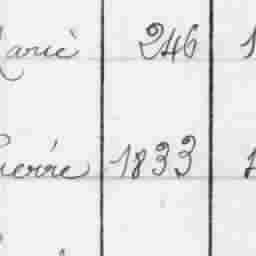 Marie 246 1
Pierre 1833 1